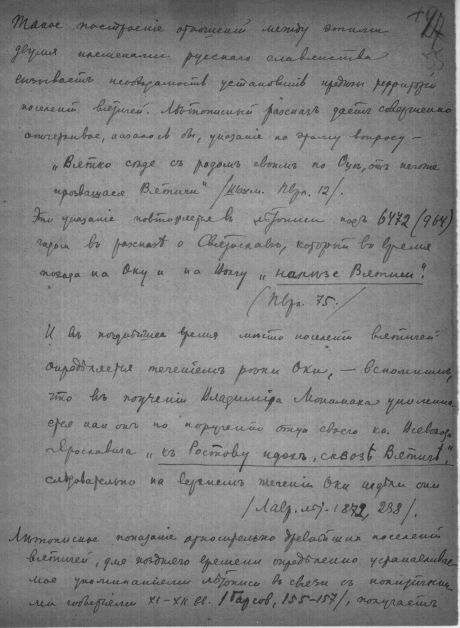 Такое построение отношений между этими
двумя племенами русскаго славянства
вызываетъ необходимость установить предѣлы территоріи
поселенія вятичей. Лѣтописный разсказъ даетъ совершенно
отчетливое, казалось бы, указаніе по этому вопросу —
„Вятко сѣде съ родомъ своимъ по Оцѣ, отъ негоже
прозвашася Вятичи" /Шахм. Пвл. 12/.
Это указаніе повторяется въ лѣтописи подъ 6472 (964)
годомъ въ разсказѣ о Святославѣ, который во время
похода на Оку и на Волгу „налѣзе Вятичи".
/Пвл. 75./
И въ позднѣйшее время мѣсто поселенія вятичей
опредѣляется теченіемъ рѣки Оки, — вспомнимъ,
что въ поученіи Владиміра Мономаха упомина-
ется какъ онъ по порученію отца своего кн. Всеволода
Ярославича „къ Ростову идохъ, сквозѣ Вятичѣ",
слѣдовательно на верхнемъ теченіи Оки сидѣли они
/Лавр. лѣт. 1872, 238/.
Лѣтописное показаніе относительно древнѣйшихъ поселеній
вятичей, для поздняго времени опредѣленно устанавливае-
мое упоминаніями лѣтописи въ связи съ политически-
ми событіями XI-XII вв. /Барсовъ, 155-157/, получаетъ